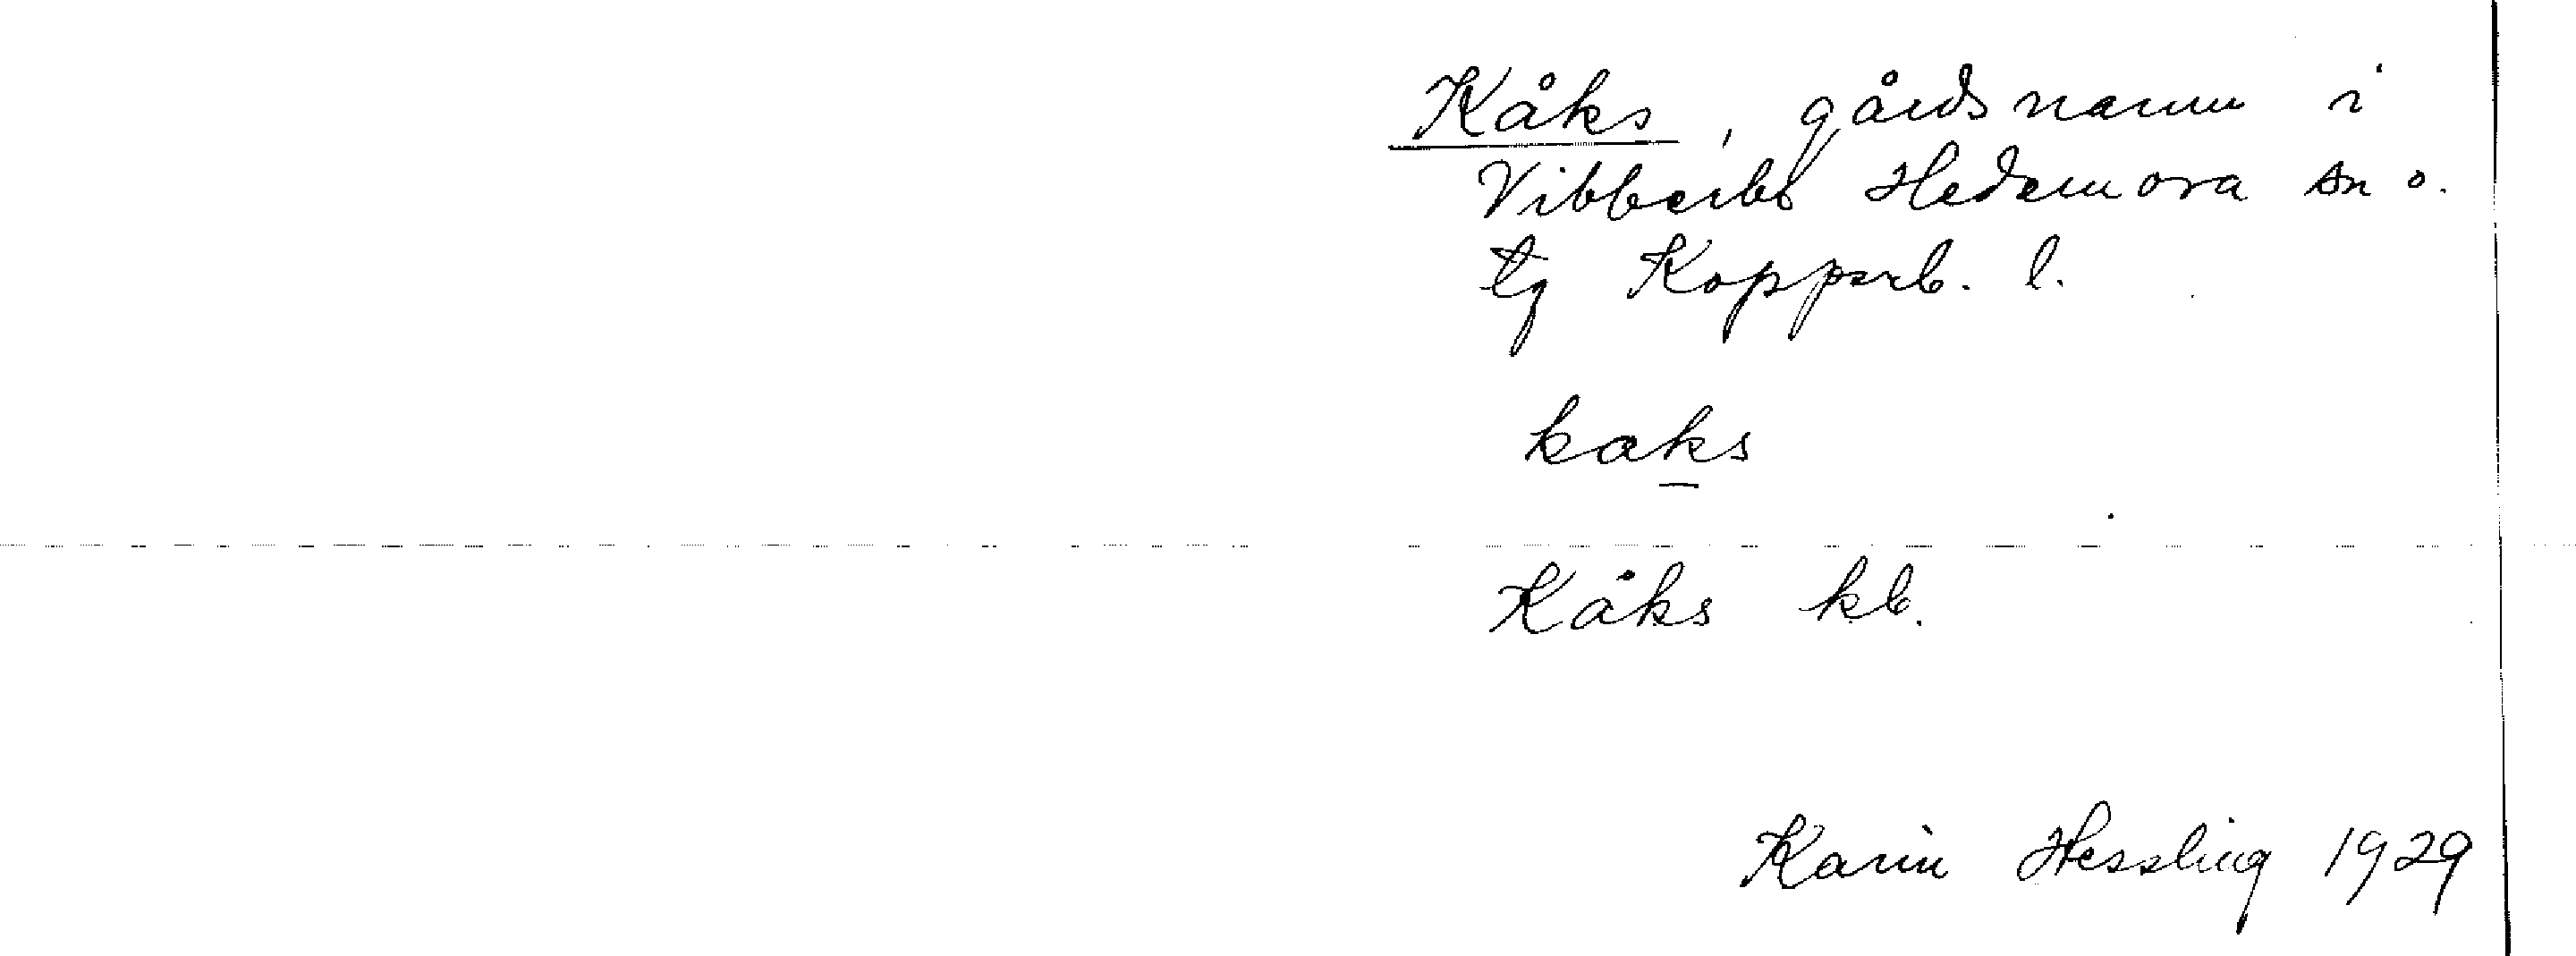 Kåks, gårdsnamn i
Vibberbo Hedemora sn o.
tg Kopparb. l.
kaks
Kåks kb.
Karin Hessling 1929